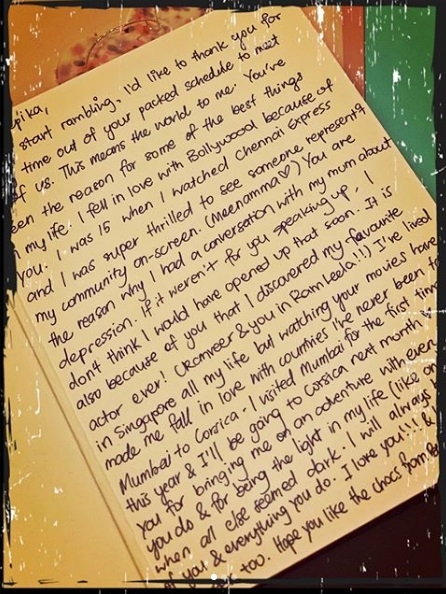 pika,
start rambling, I'd like to thank you for
time out of your packed schedule to meet
of us. This means the world to me. You've
een the reason for some of the best things
n my life. I fell in love with Bollywood because of
you. I was 15 when I watched Chennai Express
and I was super thrilled to see someone representing
my community on-screen. (Meenamma♡) You are
the reason why I had a conversation with my mum about
depression. If it weren't for you speaking up, I
don't think I would have opened up that soon. It is
also because of you that I discovered my favourite
actor ever! (Ranveer & you in Ram Leela!!!) I've lived
in Singapore all my life but watching your movies have
made me fall in love with countries I've never been to
Mumbai to Corsica. I visited Mumbai for the first time
this year & I'll be going to Corsica next month!
you for bringing me on an adventure with ever
you do & for being the light in my life (like on
when all else seemed dark. I will always
of you & everything you do. I love you!!! &
too. Hope you like the chocs from